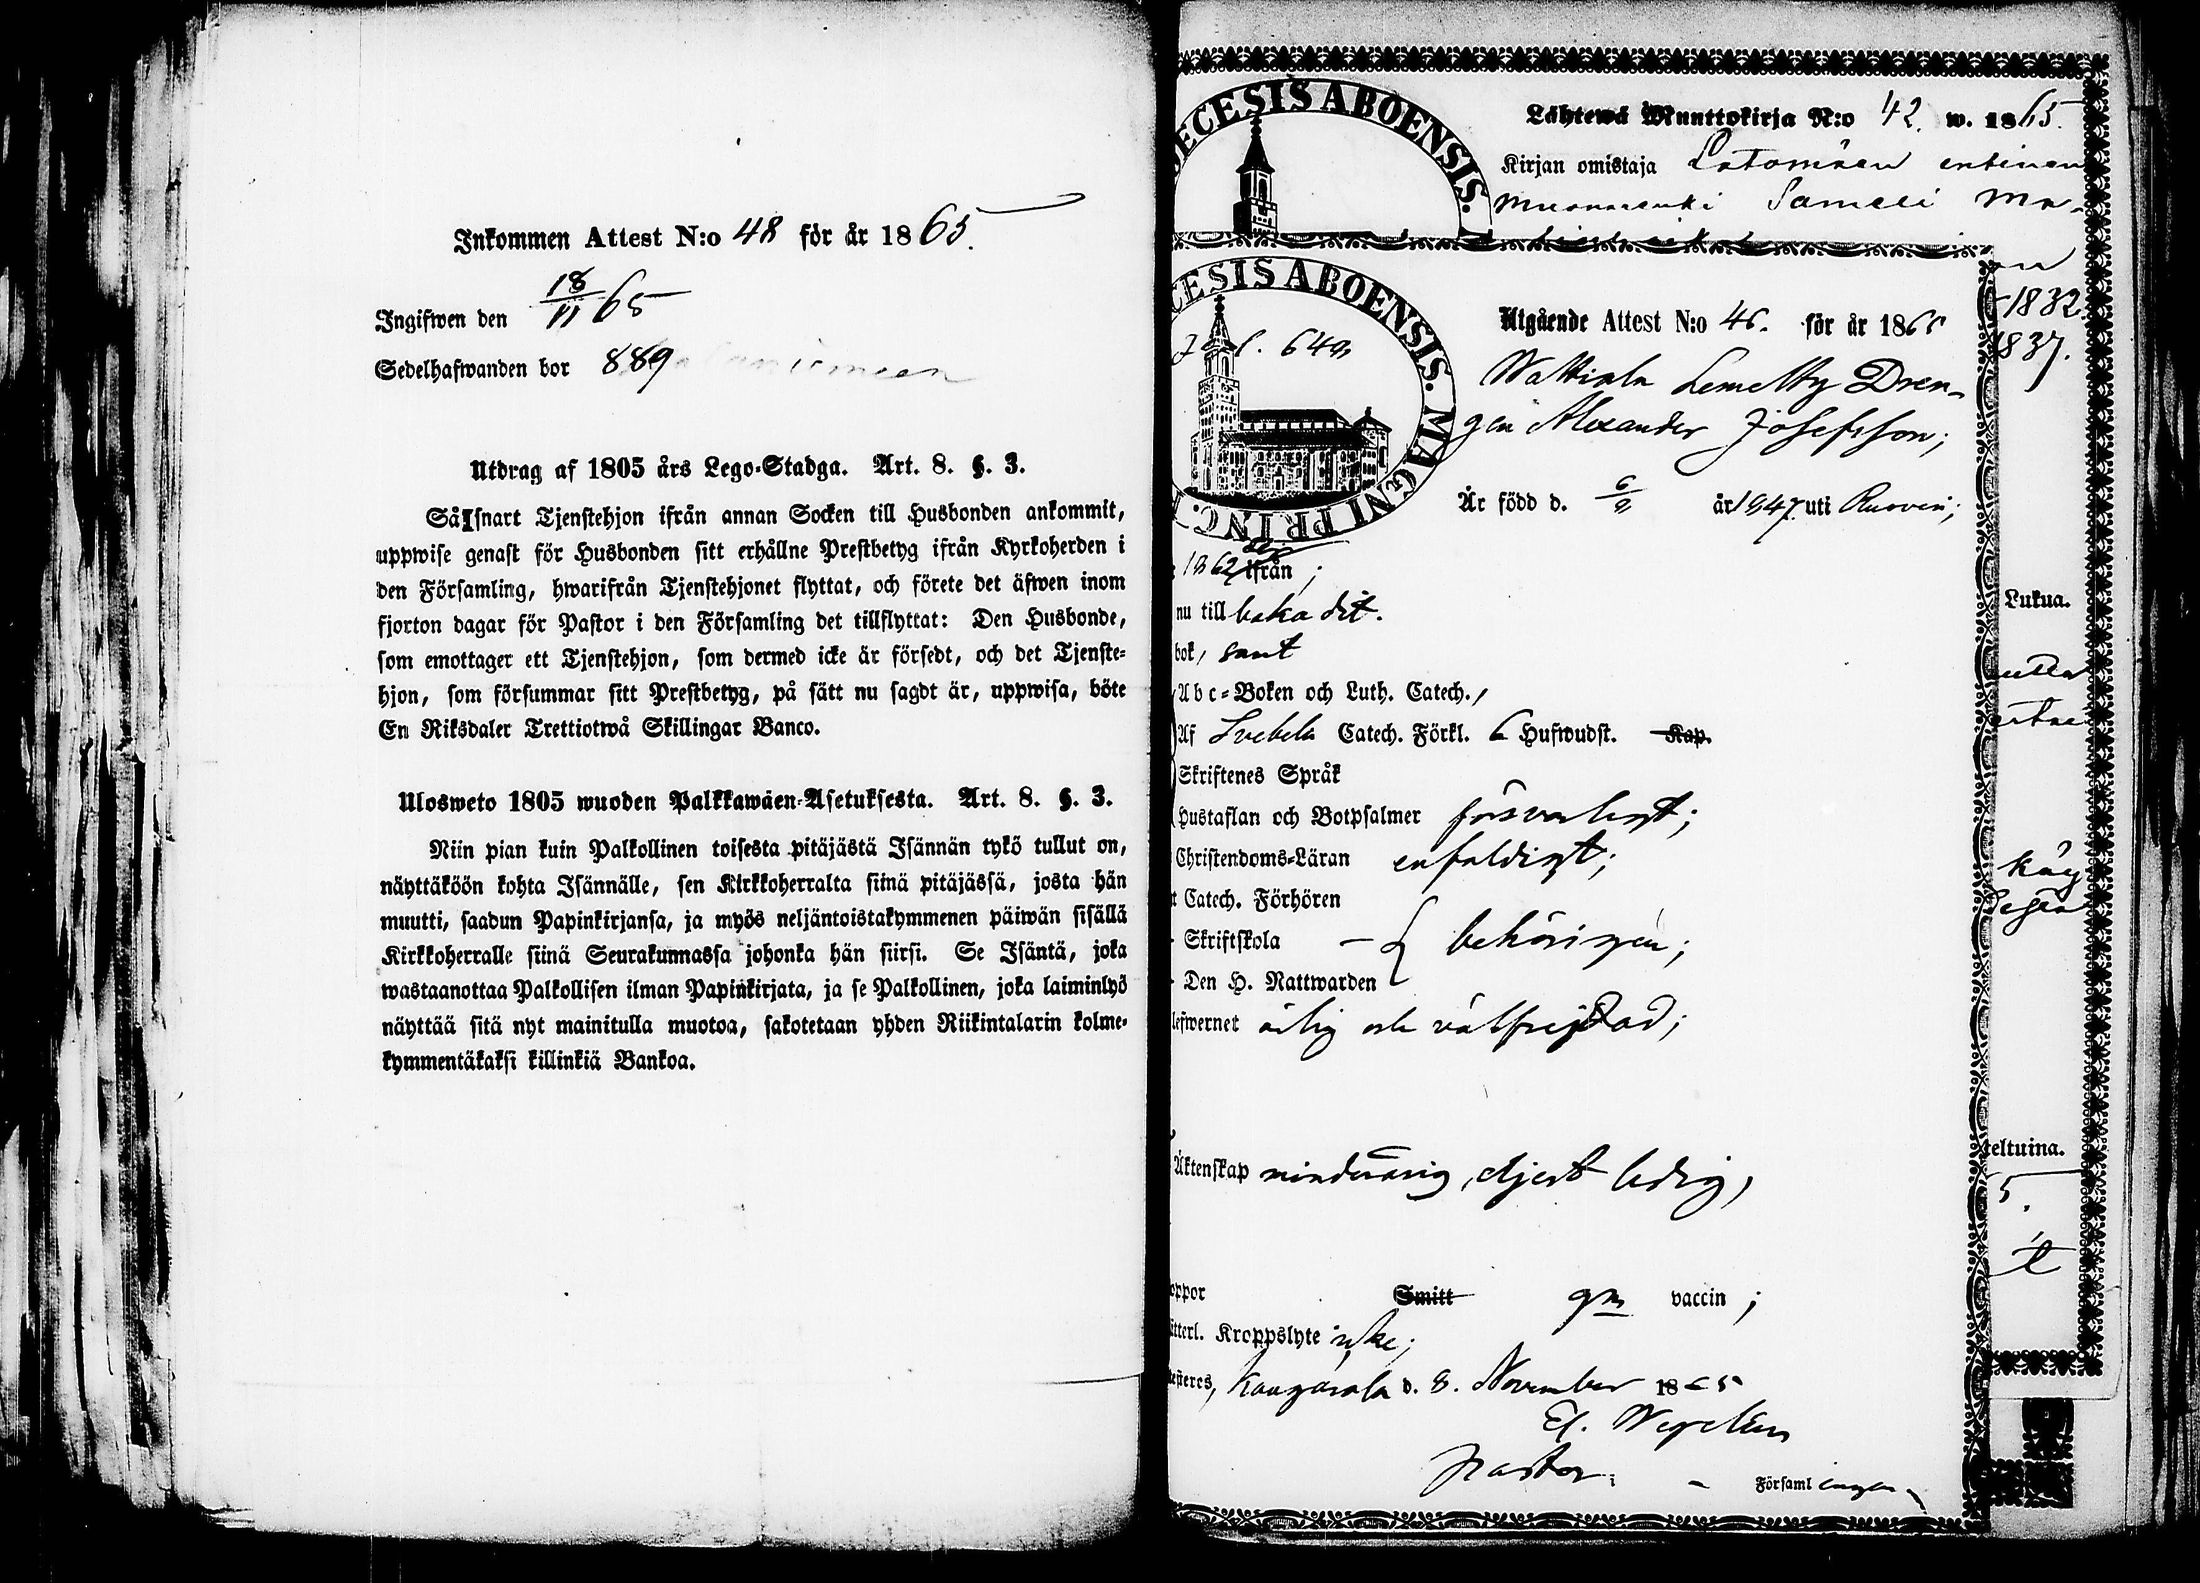 Inkommen Attest N:o 48 för år 1865.
Ingifwen den 18/11 65
Sedelhafwanden bor 889
Utdrag af 1805 års Lego-Stadga. Art. 8. §. 3.
Så snart Tjenstehjon ifrån annan Socken till Husbonden ankommit,
uppwise genast för Husbonden sitt erhållne Prestbetyg ifrån Kyrkoherden i
den Församling, hwarifrån Tjenstehjonet flyttat, och förete det äfwen inom
fjorton dagar för Pastor i den Församling det tillflyttat: Den Husbonde,
som emottager ett Tjenstehjon, som dermed icke är försedt, och det Tjenste-
hjon, som försummar sitt Prestbetyg, på sätt nu sagdt är, uppwisa, böte
En Riksdaler Trettiotwå Skillingar Banco.
Ulosweto 1805 wuoden Palkkawäen-Asetuksesta. Art. 8. §. 3.
Niin pian kuin Palkollinen toisesta pitäjästä Isännän tykö tullut on,
näyttäköön kohta Isännälle, sen Kirkkoherralta siinä pitäjässä, josta hän
muutti, saadun Papinkirjansa, ja myös neljäntoistakymmenen päiwän sisällä
Kirkkoherralle siinä Seurakunnassa johonka hän siirsi. Se Isäntä, joka
wastaanottaa Palkollisen ilman Papinkirjata, ja se Palkollinen, joka laiminlyö
näyttää sitä nyt mainitulla muotoa, sakotetaan yhden Riikintalarin kolme-
kymmentäkaksi killinkiä Bankoa.
ECESIS ABOENSIS.
Lähtewä Muuttokirja N:o 42. w. 1865.
Kirjan omistaja entinen
1832.
1837.
CESIS ABOENSIS. MAGNI PRINC.
Utgående Attest N:o 46. för år 1865
Wattiala Lemetty Dren-
gen Alexander Josefsson;
Är född d. år 1847. uti Ruovesi;
1862 ifrån;
nu till baka dit.
bok, samt
Abc-Boken och Luth. Catech.,
Af Svebelii Catech. Förkl. 6 Hufwudst. Kap.
Skriftenes Språk
Hustaflan och Botpsalmer försvarligt;
Christendoms-Läran enfaldigt;
Catech. Förhören
Skriftskola behörigen;
Den H. Nattwarden
lefwernet ärlig och välfrejdad;
Äktenskap minderårig, eljest ledig,
oppor Smitt gm vaccin;
tterl. Kroppslyte icke;
esteres, Kangasala d. 8. November 1865
Pastor i Församlingen
Lukua.
teltuina.
5.